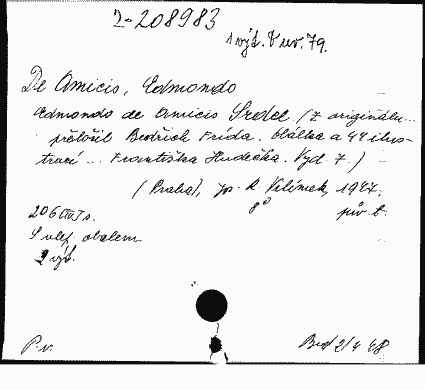 2-208983
1 výt. V uv. 79.
De Amicis, Edmondo
Edmondo de Amicis Srdce (Z originálu...
přeložil Bedřich Frída. Obálka a 44 ilus-
trací... Františka Hudečka. Vyd. 7.)
(Praha), Jos. R. Vilímek, 1927.
206 s. 8° pův. b.
S vlep. obalem
2 výt.
P. v.